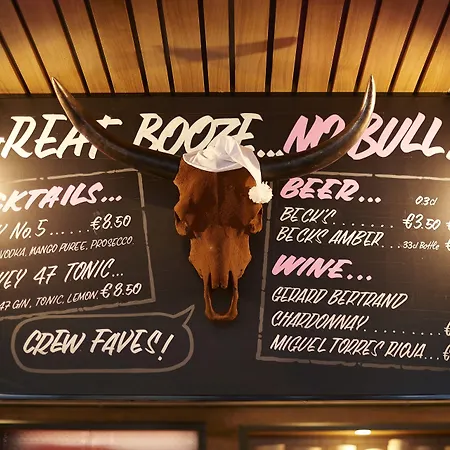 GREAT BOOZE...NO BULL
CKTAILS...
Y No 5...... €8.50
VODKA, MANGO PUREE, PROSECCO
EY 47 TONIC...
47 GIN, TONIC, LEMON. €8.50
CREW FAVES!
BEER... 03cl
BECK'S......... €3.50
BECKS AMBER... 33cl Bottle €
WINE...
GERARD BERTRAND
CHARDONNAY............ €
MIGUEL TORRES RIOJA... €